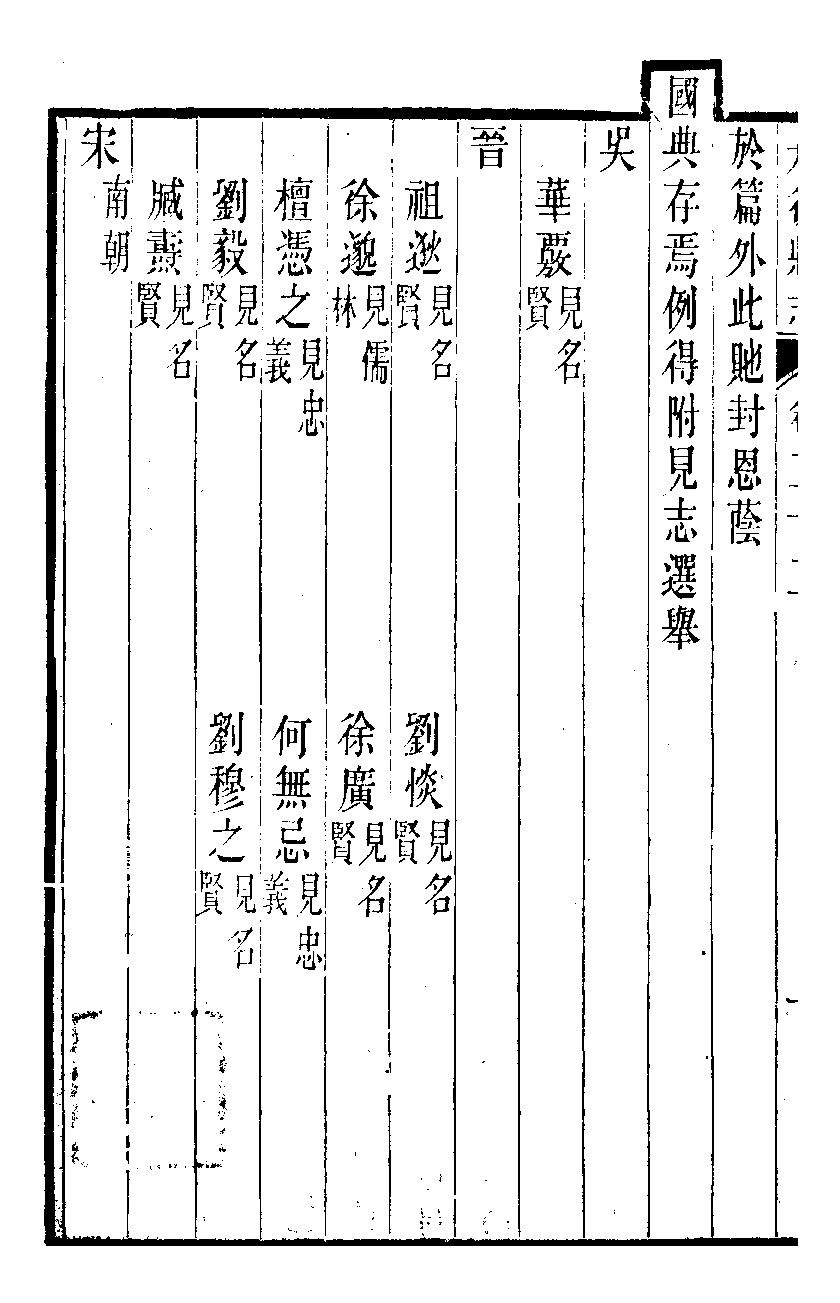 於篇外此貤封恩蔭
國典存焉例得附見志選舉
吳
華覈見名賢
晉
祖逖見名賢　劉惔見名賢
徐邈見儒林　徐廣見名賢
檀憑之見忠義　何無忌見忠義
劉毅見名賢　劉穆之見名賢
臧燾見名賢
宋南朝